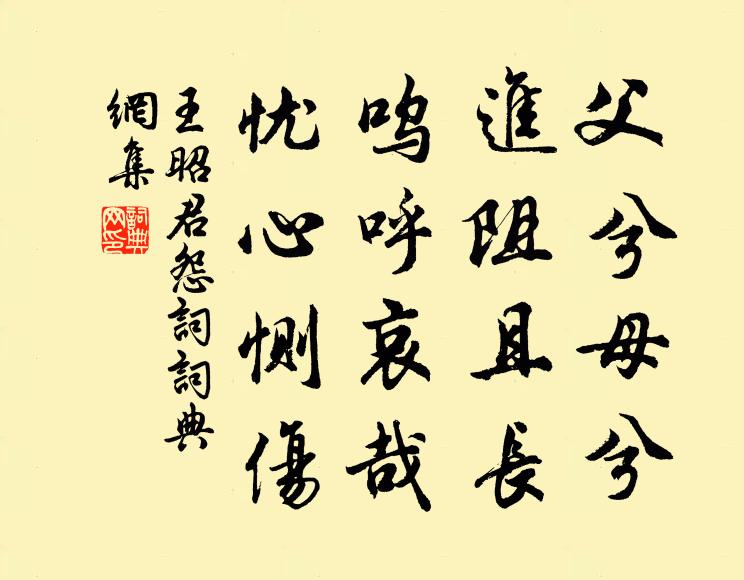 父兮母兮
進阻且長
嗚呼哀哉
忧心惻傷
王昭君怨詞詞典
網集
詞典網印